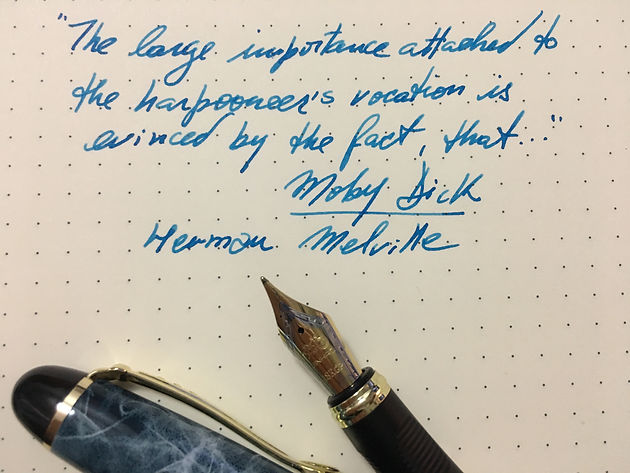 "The large importance attached to
the harpooneer's vocation is
evinced by the fact, that..."
Moby Dick
Herman Melville